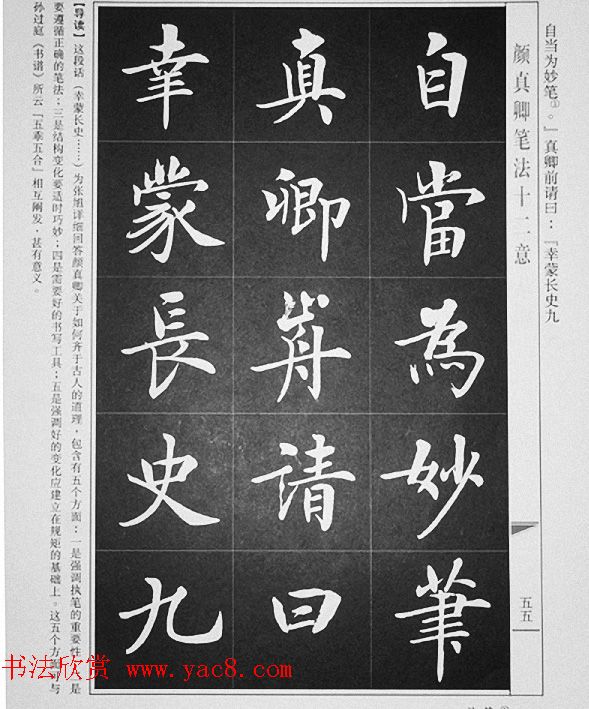 自当为妙笔①。』真卿前请曰：『幸蒙长史九
颜真卿笔法十二意
五五
自當為妙筆
真卿歬请曰
幸蒙長史九
【导读】这段话（幸蒙长史……）为张旭详细回答颜真卿关于如何齐于古人的道理，包含有五个方面：一是强调执笔的重要性
是
要遵循正确的笔法；三是结构变化要适时巧妙；四是需要好的书写工具；五是强调好的变化应建立在规矩的基础上。这五个方面
与
孙过庭《书谱》所云『五乖五合』相互阐发，甚有意义。
书法欣赏 www.yac8.com